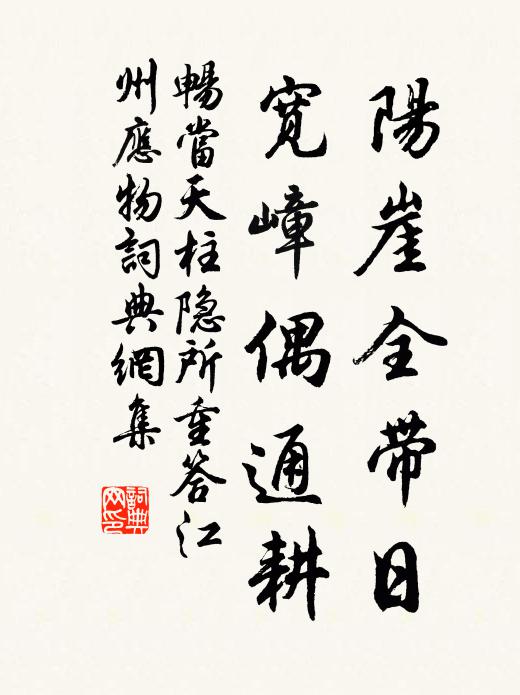 陽崖全帶日
寬嶂偶通耕
暢當天柱隐所重答江
州應物詞典網集
詞典
网印